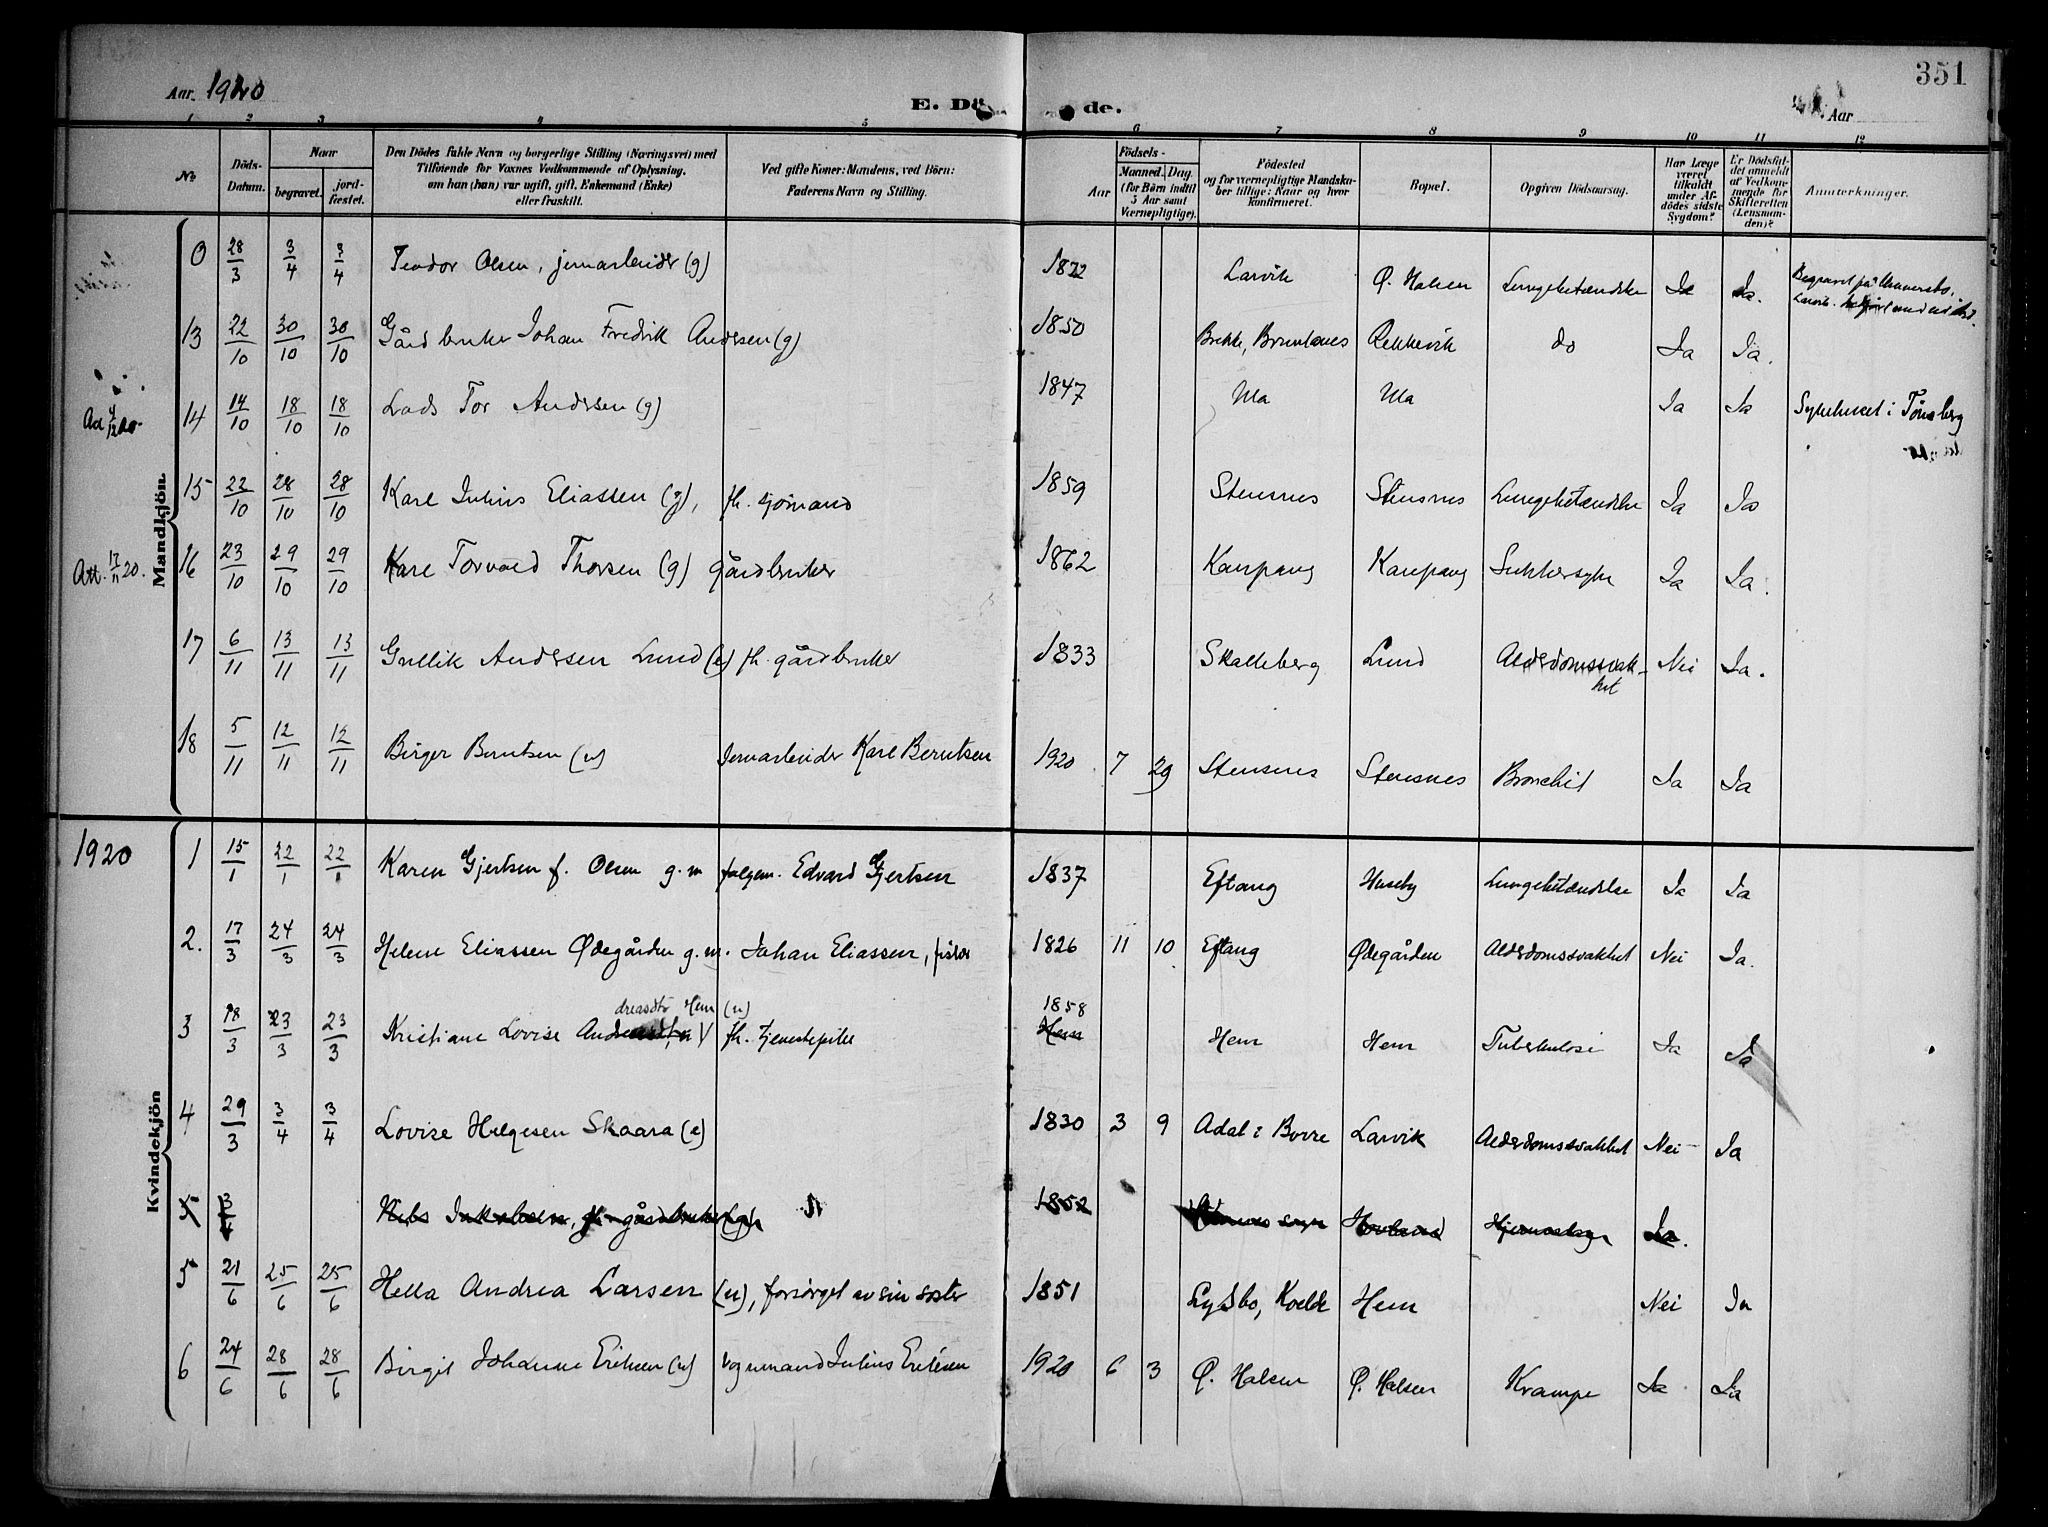 351
Aar 1920
E. Dö de.
Aar
1 2 3 4 5 6 7 8 9 10 11 12
No
Döds-Datum.
Naar
begravet.
jord-fæstet.
Den Dödes fulde Navn og borgerlige Stilling (Næringsvei) med
Tilføiende for Voxnes Vedkommende af Oplysning,
om han (hun) var ugift, gift, Enkemand (Enke)
eller fraskilt.
Ved gifte Koner: Mandens, ved Börn:
Faderens Navn og Stilling.
Födsels-
Aar
Maaned. Dag.
(for Börn indtil
5 Aar samt
Værnepligtige).
Födested
og for værnepligtige Mandska-
ber tillige: Naar og hvor
Konfirmeret.
Bopæl.
Opgiven Dödsaarsag.
Har Læge
været
tilkaldt
under Af-
dödes sidste
Sygdom?
Er Dödsfal-
det anmeldt
af Vedkom-
mende for
Skifteretten
(Lensman-
den)?
Anmærkninger.
Mandkjön.
0 28/3 3/4 3/4 Teodor Olsen, jernarbeider (g) 1872 Larvik Ø. Halsen Lungebetændelse Ja Ja. Begravet på
Larvik.
13 22/10 30/10 30/10 Gårdbruker Johan Fredrik Andersen (g) 1850 Brekke, Brunlanes Rekkevik do Ja Ja.
14 14/10 18/10 18/10 Lods Tor Andersen (g) 1847 Ula Ula Ja Ja Sykehuset i Tønsberg
15 22/10 28/10 28/10 Karl Julius Eliassen (g), fh. sjømand 1859 Stensnes Stensnes Lungebetændelse Ja Ja
Att. 17/11 20.
16 23/10 29/10 29/10 Karl Torvald Thorsen (g) gårdbruker 1862 Kaupang Kaupang Sukkersyke Ja Ja.
17 6/11 13/11 13/11 Gullik Andersen Lund (e) fh. gårdbruker 1833 Skalleberg Lund Alderdomssvak-
het Nei Ja.
18 5/11 12/11 12/11 Birger Berntsen (u) Jernarbeider Karl Berntsen 1920 7 29 Stensnes Stensnes Bronchit Ja Ja
1920
Kvindekjön
1 15/1 22/1 22/1 Karen Gjertsen f. Olsen g. m. Edvard Gjertsen 1837 Eftang Huseby Lungebetændelse Ja Ja
2. 17/3 24/3 24/3 Helene Eliassen Ødegården g. m. Johan Eliassen, fisker 1826 11 10 Eftang Ødegården Alderdomssvakhet Nei Ja.
dreasdtr Hem (u) 1858
3 18/3 23/3 23/3 Kristiane Lovise Andreasdtr V fh. tjenestepike Hem Hem Hem Tuberkulose Ja Ja
4 29/3 3/4 3/4 Lovise Helgesen Skaara (e) 1830 3 9 Adal i Borre Larvik Alderdomssvakhet Nei Ja
5 3/4 Nils Jakobsen, fh. gårdbruker (g) 1852 Hovland Ja.
5 21/6 25/6 25/6 Hella Andrea Larsen (u), forsørget av sin søster 1851 Lysbo, Kvelde Hem Nei Ja
6 24/6 28/6 28/6 Birgit Johanne Eriksen (u) Vognmand Julius Eriksen 1920 6 3 Ø. Halsen Ø. Halsen Krampe Ja Ja